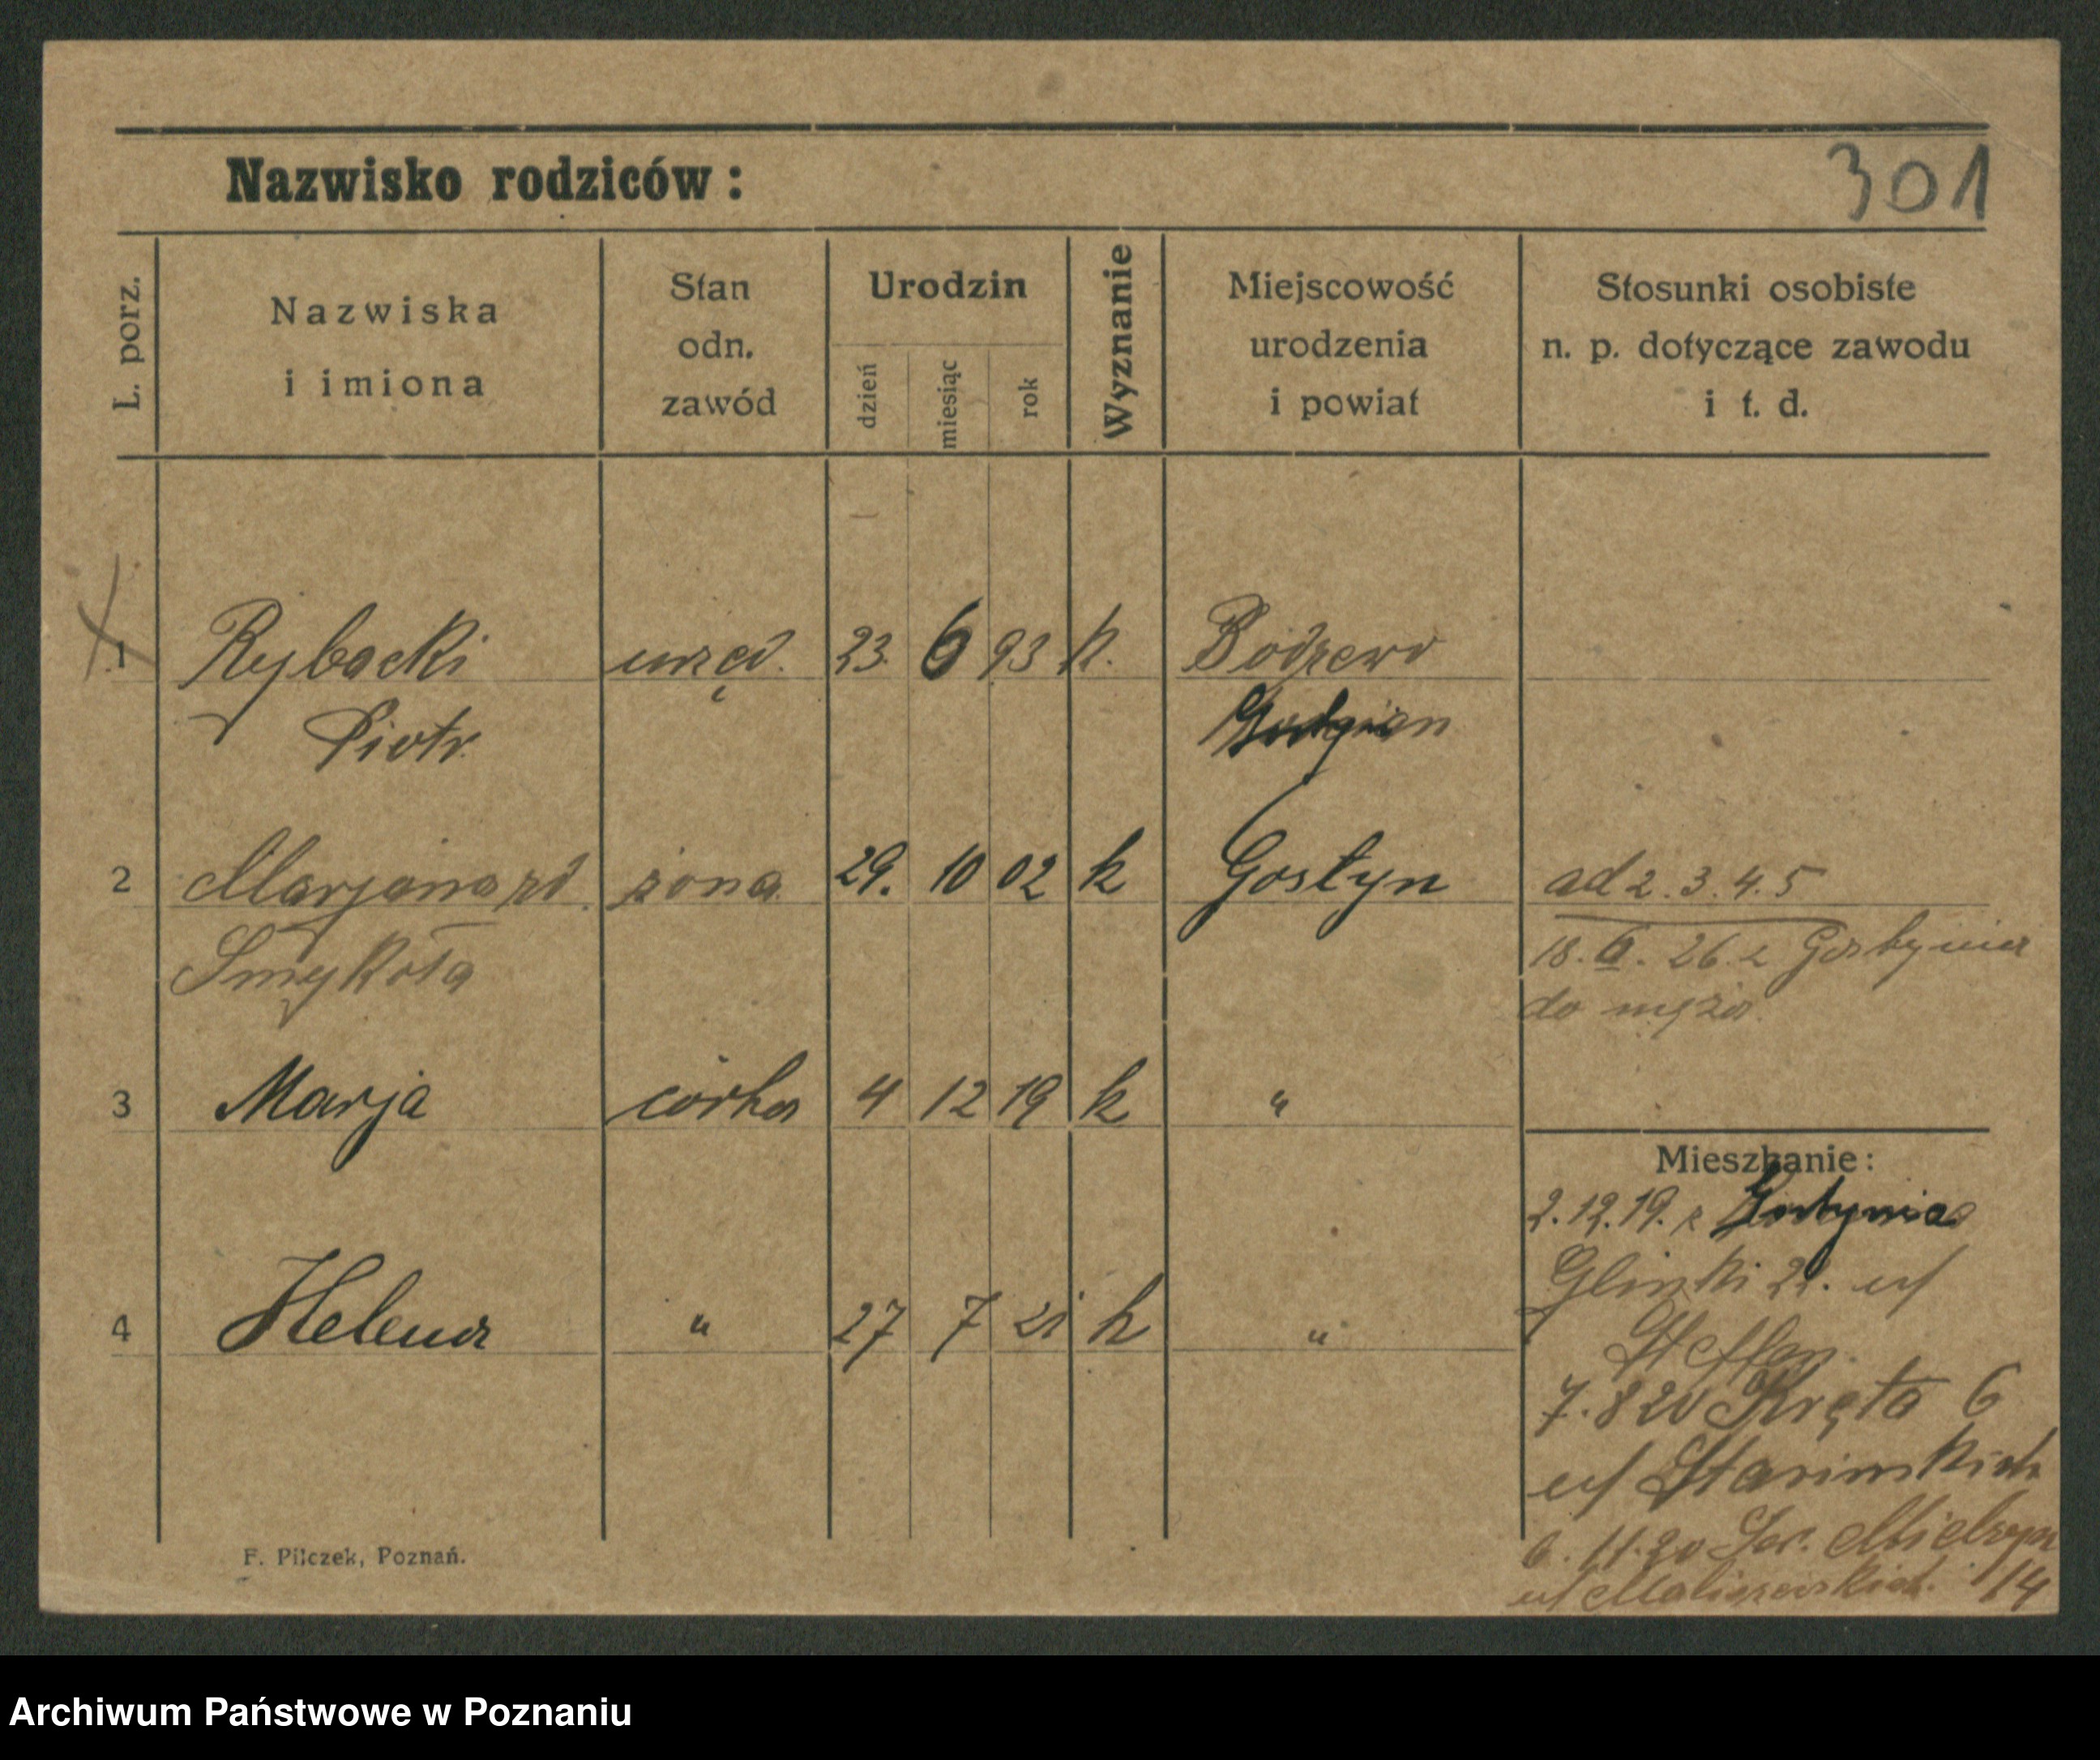 301
Nazwisko rodziców:
L. porz.
Nazwiska
i imiona
Stan
odn.
zawód
Urodzin
dzień
miesiąc
rok
Wyznanie
Miejscowość
urodzenia
i powiat
Stosunki osobiste
n. p. dotyczące zawodu
i t. d.
1 Rybacki urzęd. 23. 6 93 k. Bodzewo
Piotr
2 Marjana żona 29. 10 02 k Gostyn ad 2. 3. 4. 5
Smykoła
18. 26. z Gostynia
do męża
3 Marja córka 4 12 19 k "
Mieszkanie:
2.12.19. z Gostynia
Glinki 22. u/
Steffan
4 Helena " 27 7 21 k "
7.8 20 Kręta 6
u/
6. 11.20 Sew. Mielżyń
14
F. Pilczek, Poznań.
Archiwum Państwowe w Poznaniu